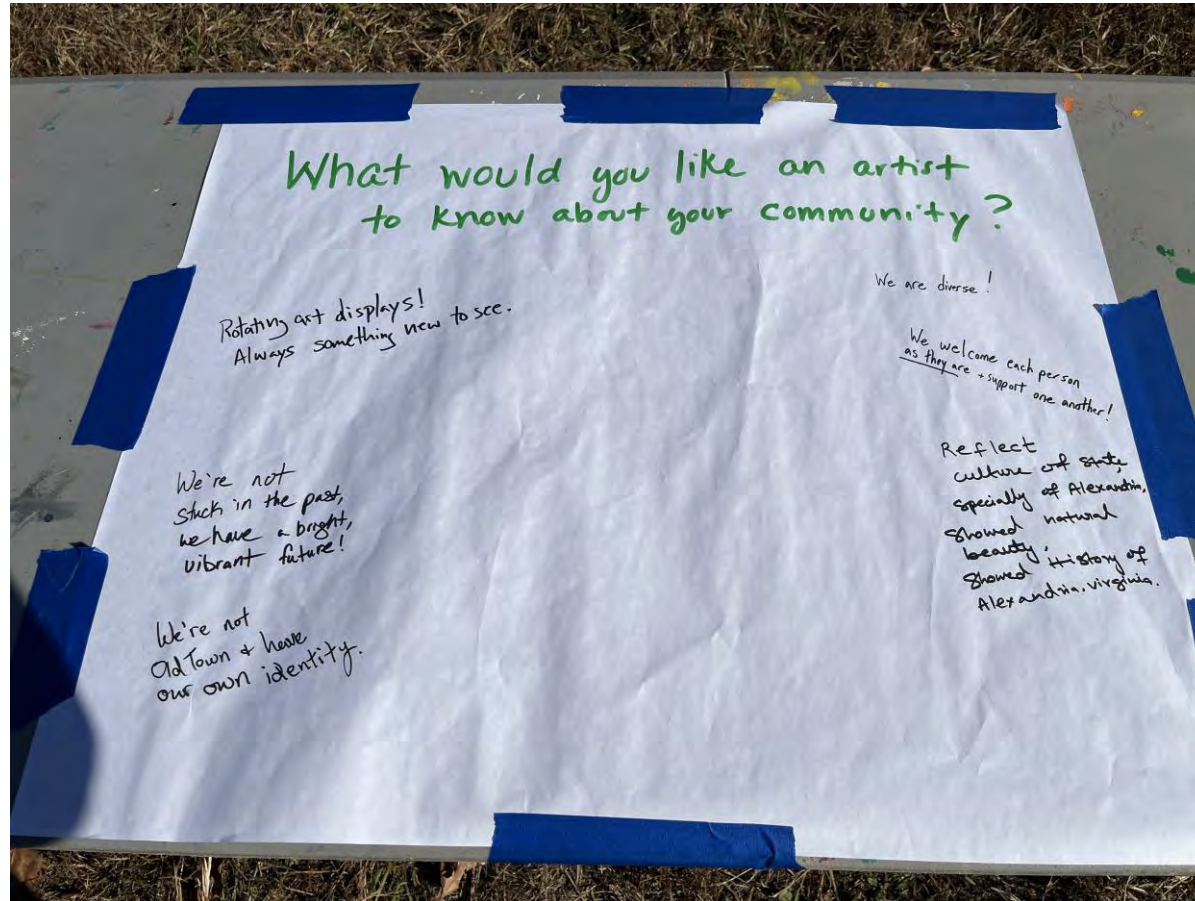 What would you like an artist
to know about your community?
Rotating art displays!
Always something new to see.
We're not
stuck in the past,
we have a bright,
vibrant future!
We're not
Old Town & have
our own identity.
We are diverse!
We welcome each person
as they are + support one another!
Reflect
culture of state,
specially of Alexandria,
showed natural
beauty,
showed History of
Alexandria, virginia.